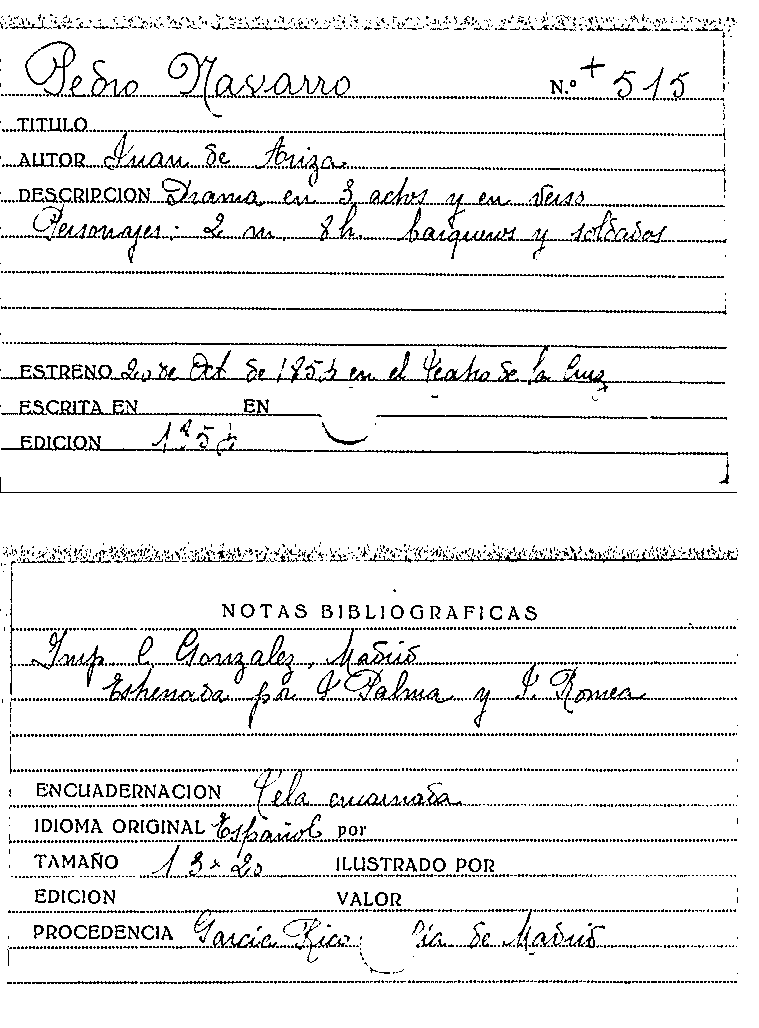 Pedro Navarro N.º + 515
TITULO
AUTOR Juan de Ariza
DESCRIPCION Drama en 3 actos y en verso
Personajes: 2 m. 8 h. barqueros y soldados
ESTRENO 20 de Oct de 185 en el Teatro de la Cruz
ESCRITA EN EN
EDICION 185
NOTAS BIBLIOGRAFICAS
Imp C. Gonzalez, Madrid
Estrenada por J Palma y J. Romea
ENCUADERNACION Tela encarnada
IDIOMA ORIGINAL Español por
TAMAÑO 13 x 20 ILUSTRADO POR
EDICION VALOR
PROCEDENCIA Garcia Rico de Madrid